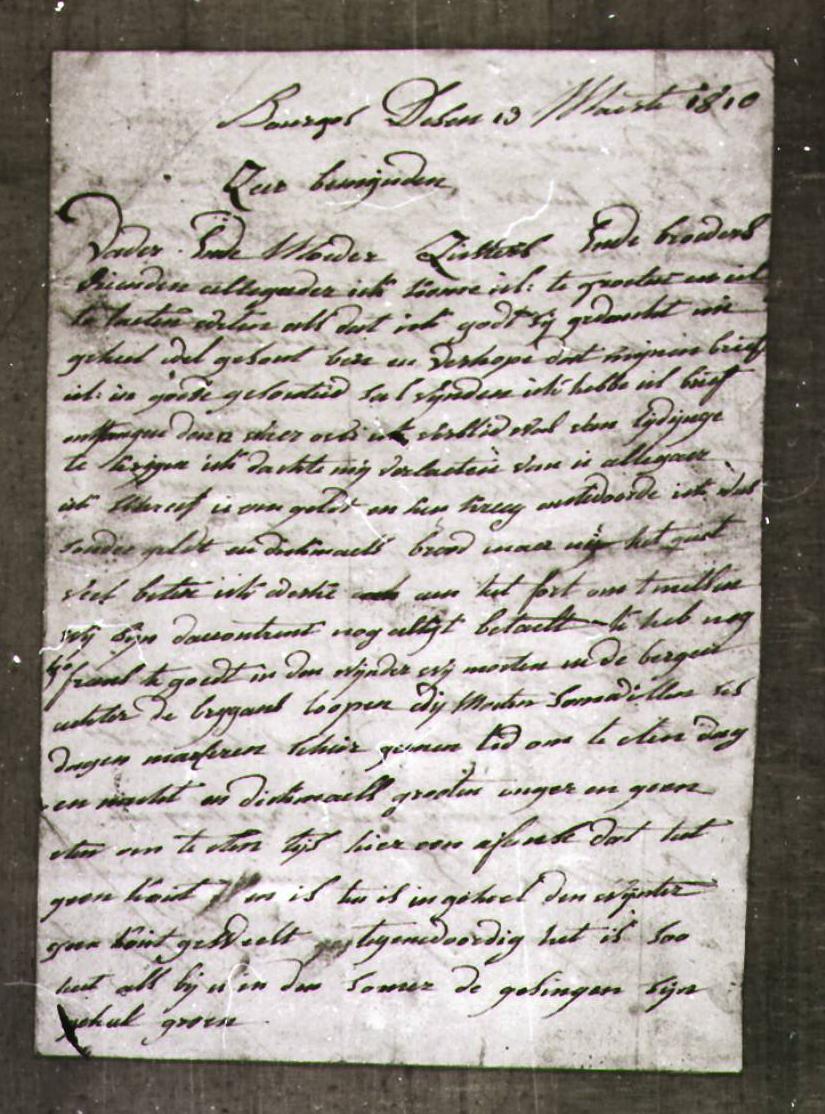 Bourgos Desen 13 Maerte 1810
Zeer beminden,
Vader Ende Moeder Zusters Ende broeders
vrienden allegader ick kome ul: te groeten en ul
te laeten weten als dat ick godt sij gedanckt nu
geheel wel gesont ben en verhope dat mijnen brief
ul: in goede gesonteid sal vynden ick hebbe ul brief
ontfangen daer seer over ick verblid was van tijdinge
te krijgen ick dachte mij verlaeten van u allegaer
ick schreef u om geldt en hen kreeg antwoorde ick was
sonder geldt en dickmaels brood maer nu het gaet
veel beter ick wercke aen het fort om
wij sijn daeromtrent nog altijt betaelt ick heb nog
frans te goedt in den wijnder wij moeten in de bergen
achter de loopen Wij Moeten somwillen ses
dagen marseren schier geenen tid om te eten dag
en nacht en dickmaels grooten onger en geen
eten om te eten tijs hier een dat het
geen kout en is het is in geheel den wijnter
geen kout geweest tegenwoordig het is soo
heet als bij u in den somer de sijn
gehel groen